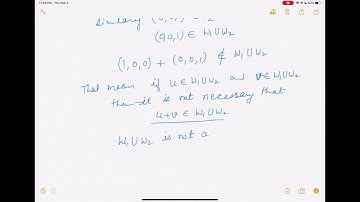 Similarly (0,0,1) ∈ W₂
(0,0,1) ∈ W₁∪W₂
(1,0,0) + (0,0,1) ∉ W₁∪W₂
That mean if u∈W₁∪W₂ and v∈W₁∪W₂
then it is not necessary that
u+v ∈ W₁∪W₂
W₁∪W₂ is not a